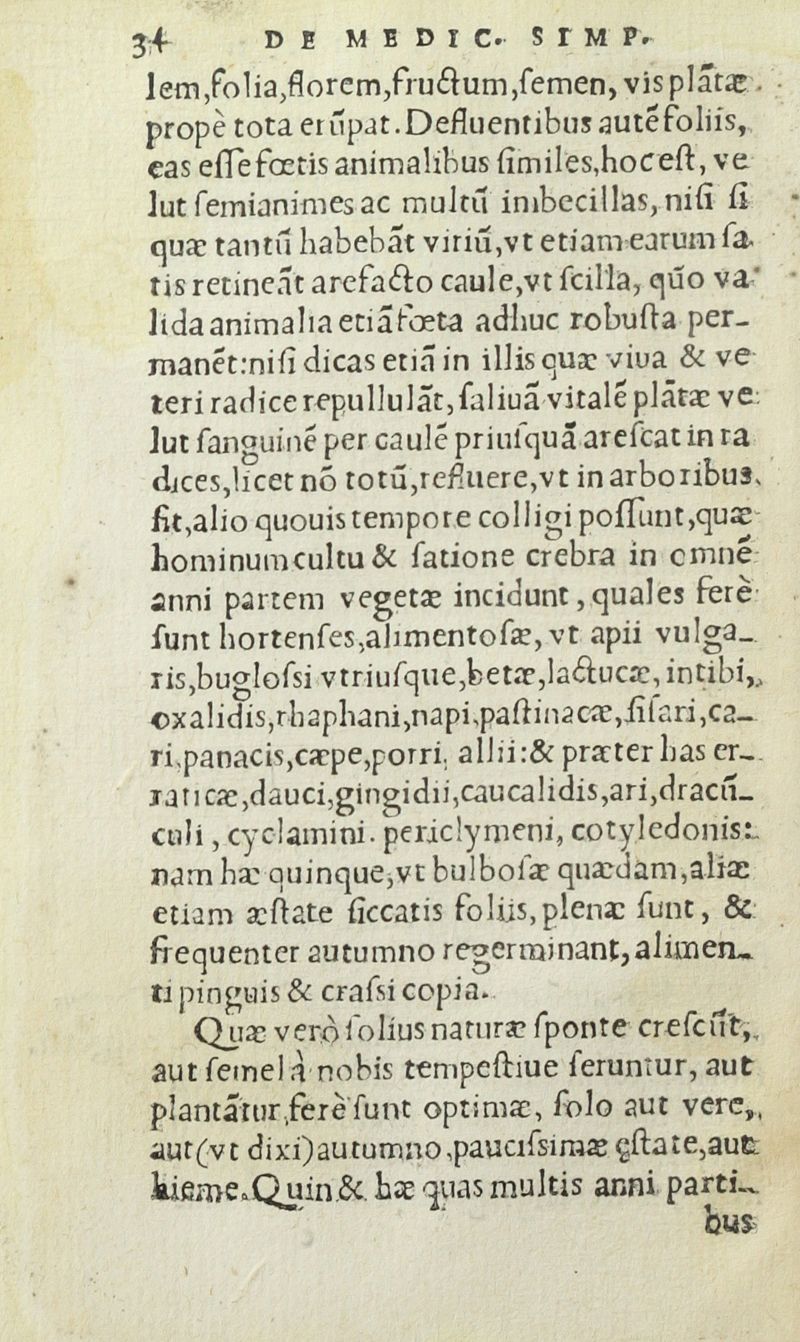 34 DE MEDIC. SIMP.
lem,folia,florem,fructum,ſemen, vis plãtæ
propè tota erũpat. Defluentibus autẽ foliis,
eas eſſe fœtis animalibus ſimiles,hoc eſt, ve
lut ſemianimes ac multũ imbecillas, niſi ſi
quæ tantũ habebãt viriũ,vt etiam earum ſa
tis retineãt arefacto caule,vt ſcilla, quo va
lida animalia etiã fœta adhuc robuſta per-
manẽt:niſi dicas etiã in illis quæ viua & ve
teri radice repullulãt, ſaliuã vitalẽ plãtæ ve
lut ſanguinẽ per caulẽ priuſquã areſcat in ra
dices,licet nõ totũ,refluere,vt in arboribus
fit,alio quouis tempore colligi poſſunt,quæ
hominum cultu & ſatione crebra in omnẽ
anni partem vegetæ incidunt, quales ferè
ſunt hortenſes,alimentoſæ, vt apii vulga-
ris,bugloſsi vtriuſque,betæ,lactucæ, intibi,
oxalidis,rhaphani,napi,paſtinacæ,ſiſari,ca-
ri,panacis,cæpe,porri, allii:& præter has er-
raticæ,dauci,gingidii,caucalidis,ari,dracũ-
culi, cyclamini. periclymeni, cotyledonis:
nam hæ quinque,vt bulboſæ quædam,aliæ
etiam æſtate ſiccatis foliis, plenæ ſunt, &
frequenter autumno regerminant, alimen-
ti pinguis & craſsi copia.
Quæ verò ſolius naturæ ſponte creſcũt,
aut ſemel à nobis tempeſtiue ſeruntur, aut
plantãtur,ferè ſunt optimæ, ſolo aut vere,
aut (vt dixi) autumno,pauciſsimæ ęſtate,aut
hieme. Quin & hæ quas multis anni parti-
bus